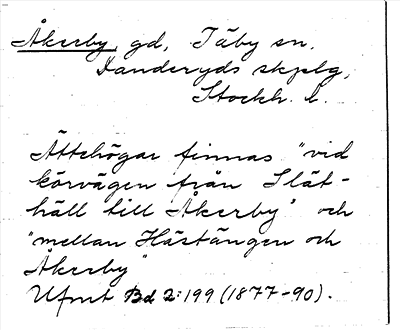 Åkerby, gd, Täby sn.
Danderyds skplg,
Stockh. l.
Ättehögar finnas "vid
körvägen från Slät-
häll till Åkerby" och
"mellan Hästängen och
Åkerby"
Ufmt Bd 2:199 (1877-90).